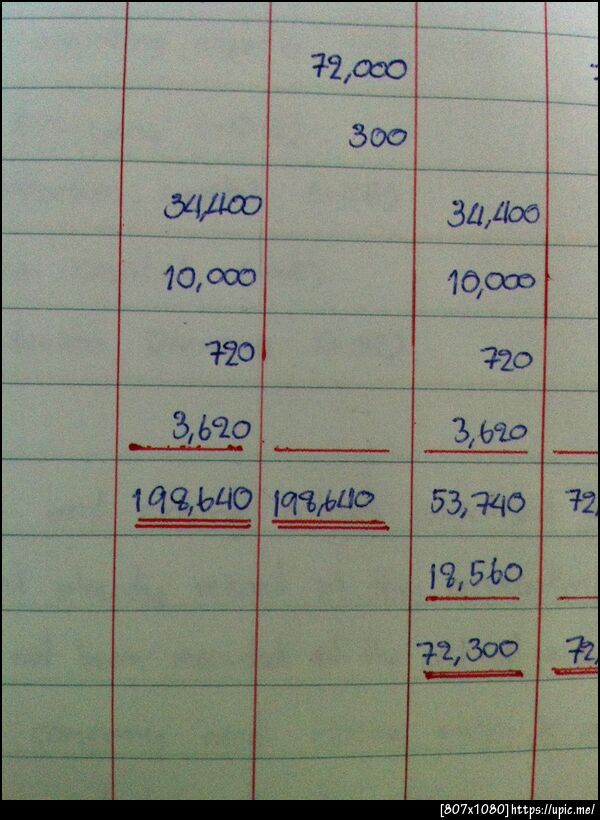 72,000
300
34,400 34,400
10,000 10,000
720 720
3,620 3,620
198,640 198,640 53,740 72,
18,560
72,300 72,
[807x1080]https://upic.me/